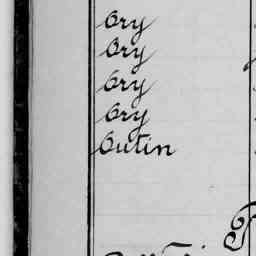 Ory
Ory
Ory
Ory
Outin